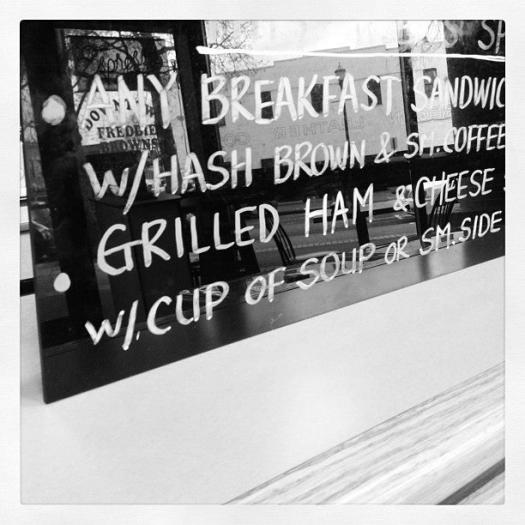 SP
• ANY BREAKFAST SANDWIC
W/HASH BROWN & SM.COFFEE
• GRILLED HAM & CHEESE S
W/.CUP OF SOUP OR SM.SIDE
FREDDIE
BROWNS